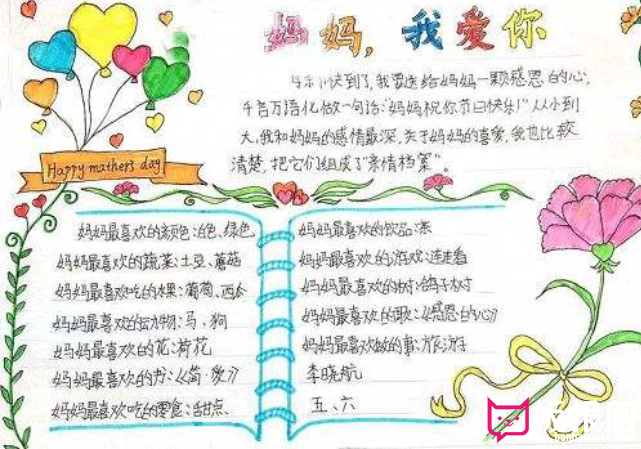 妈妈,我爱你
快到了,我要送给妈妈一颗感恩的心,
千言万语化做一句话:“妈妈祝你节日快乐!”从小到
大,我和妈妈的感情最深,关于妈妈的喜爱,我也比较
清楚,把它们组成了“亲情档案”。
Happy mathers day
妈妈最喜欢的颜色:白色、绿色
妈妈最喜欢的蔬菜:土豆、蘑菇
妈妈最喜欢吃的水果:葡萄、西
妈妈最喜欢的动物:马、狗
妈妈最喜欢的花:荷花
妈妈最喜欢的书:《简·爱》
妈妈最喜欢吃的零食:甜点、
妈妈最喜欢的饮品:茶
妈妈最喜欢的游戏:连连看
妈妈最喜欢的树:鸽子树
妈妈最喜欢的歌:《感恩的心》
妈妈最喜欢做的事:旅游
李晓航
五、六